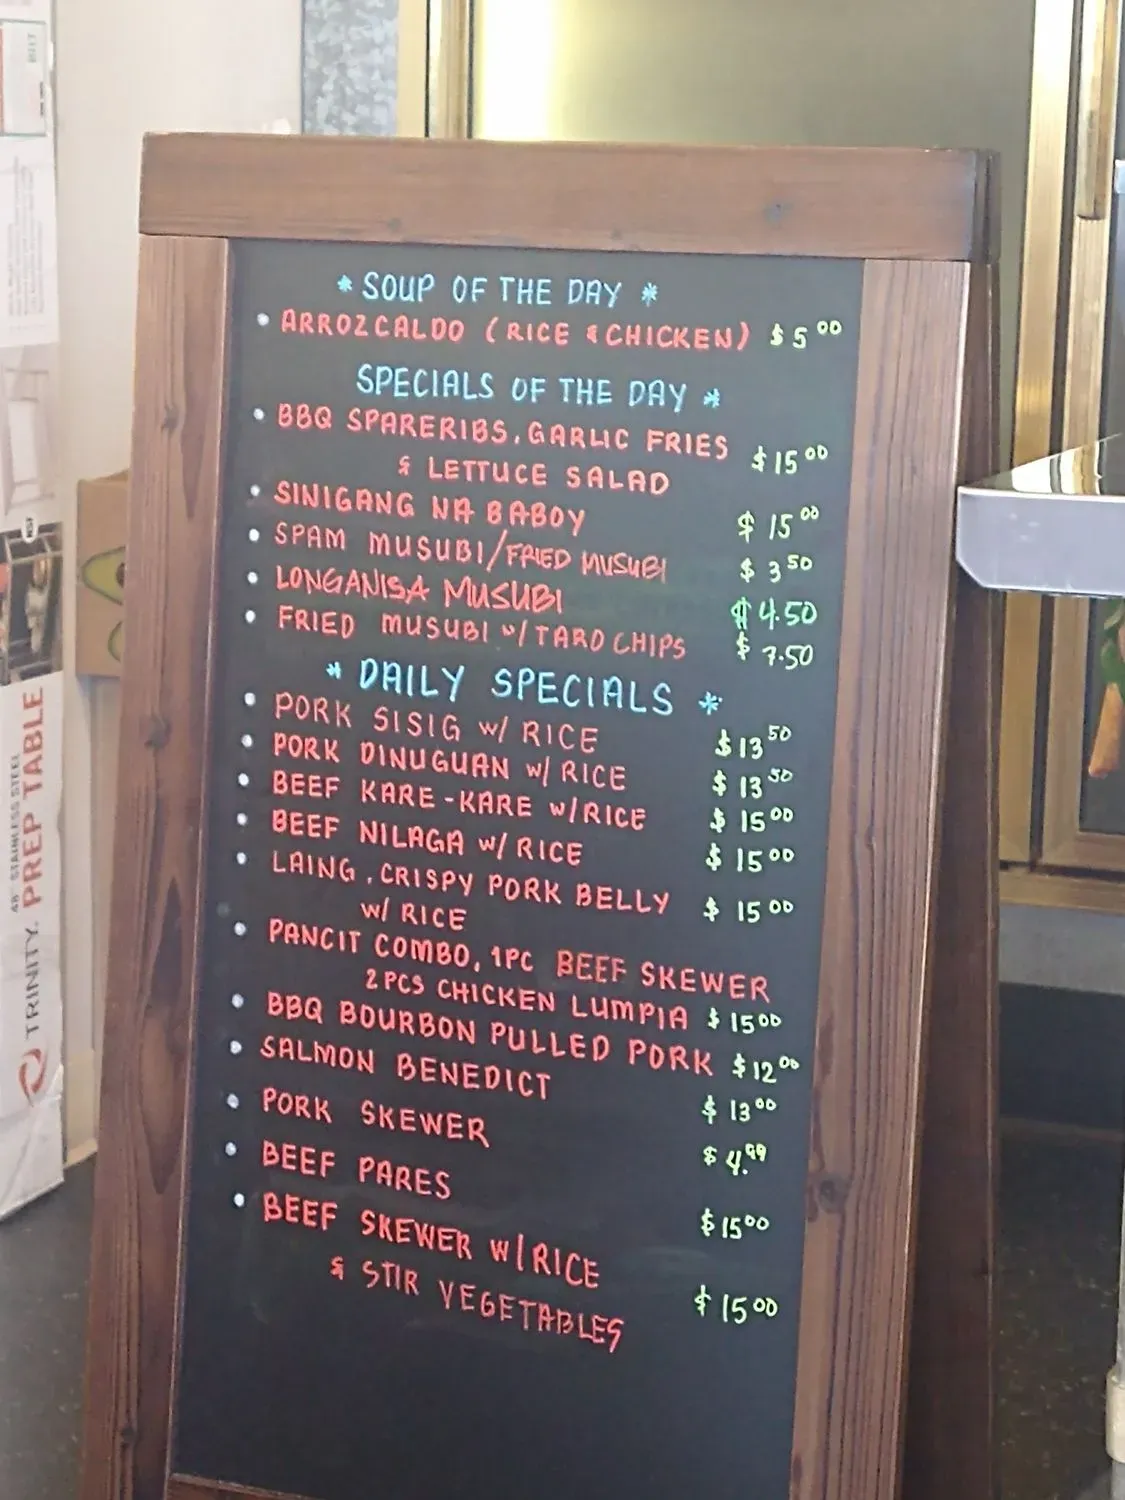 * SOUP OF THE DAY *
• ARROZCALDO (RICE & CHICKEN) $5.00
SPECIALS OF THE DAY *
• BBQ SPARERIBS, GARLIC FRIES
& LETTUCE SALAD $15.00
• SINIGANG NA BABOY $15.00
• SPAM MUSUBI/FRIED MUSUBI $3.50
• LONGANISA MUSUBI $4.50
• FRIED MUSUBI w/TARO CHIPS $7.50
* DAILY SPECIALS *
• PORK SISIG w/ RICE $13.50
• PORK DINUGUAN w/ RICE $13.50
• BEEF KARE-KARE w/RICE $15.00
• BEEF NILAGA w/ RICE $15.00
• LAING, CRISPY PORK BELLY
w/ RICE $15.00
• PANCIT COMBO, 1PC BEEF SKEWER
2 PCS CHICKEN LUMPIA $15.00
• BBQ BOURBON PULLED PORK $12.00
• SALMON BENEDICT $13.00
• PORK SKEWER $4.99
• BEEF PARES $15.00
• BEEF SKEWER w/RICE
& STIR VEGETABLES $15.00
TRINITY. 48" STAINLESS STEEL
PREP TABLE
NSF